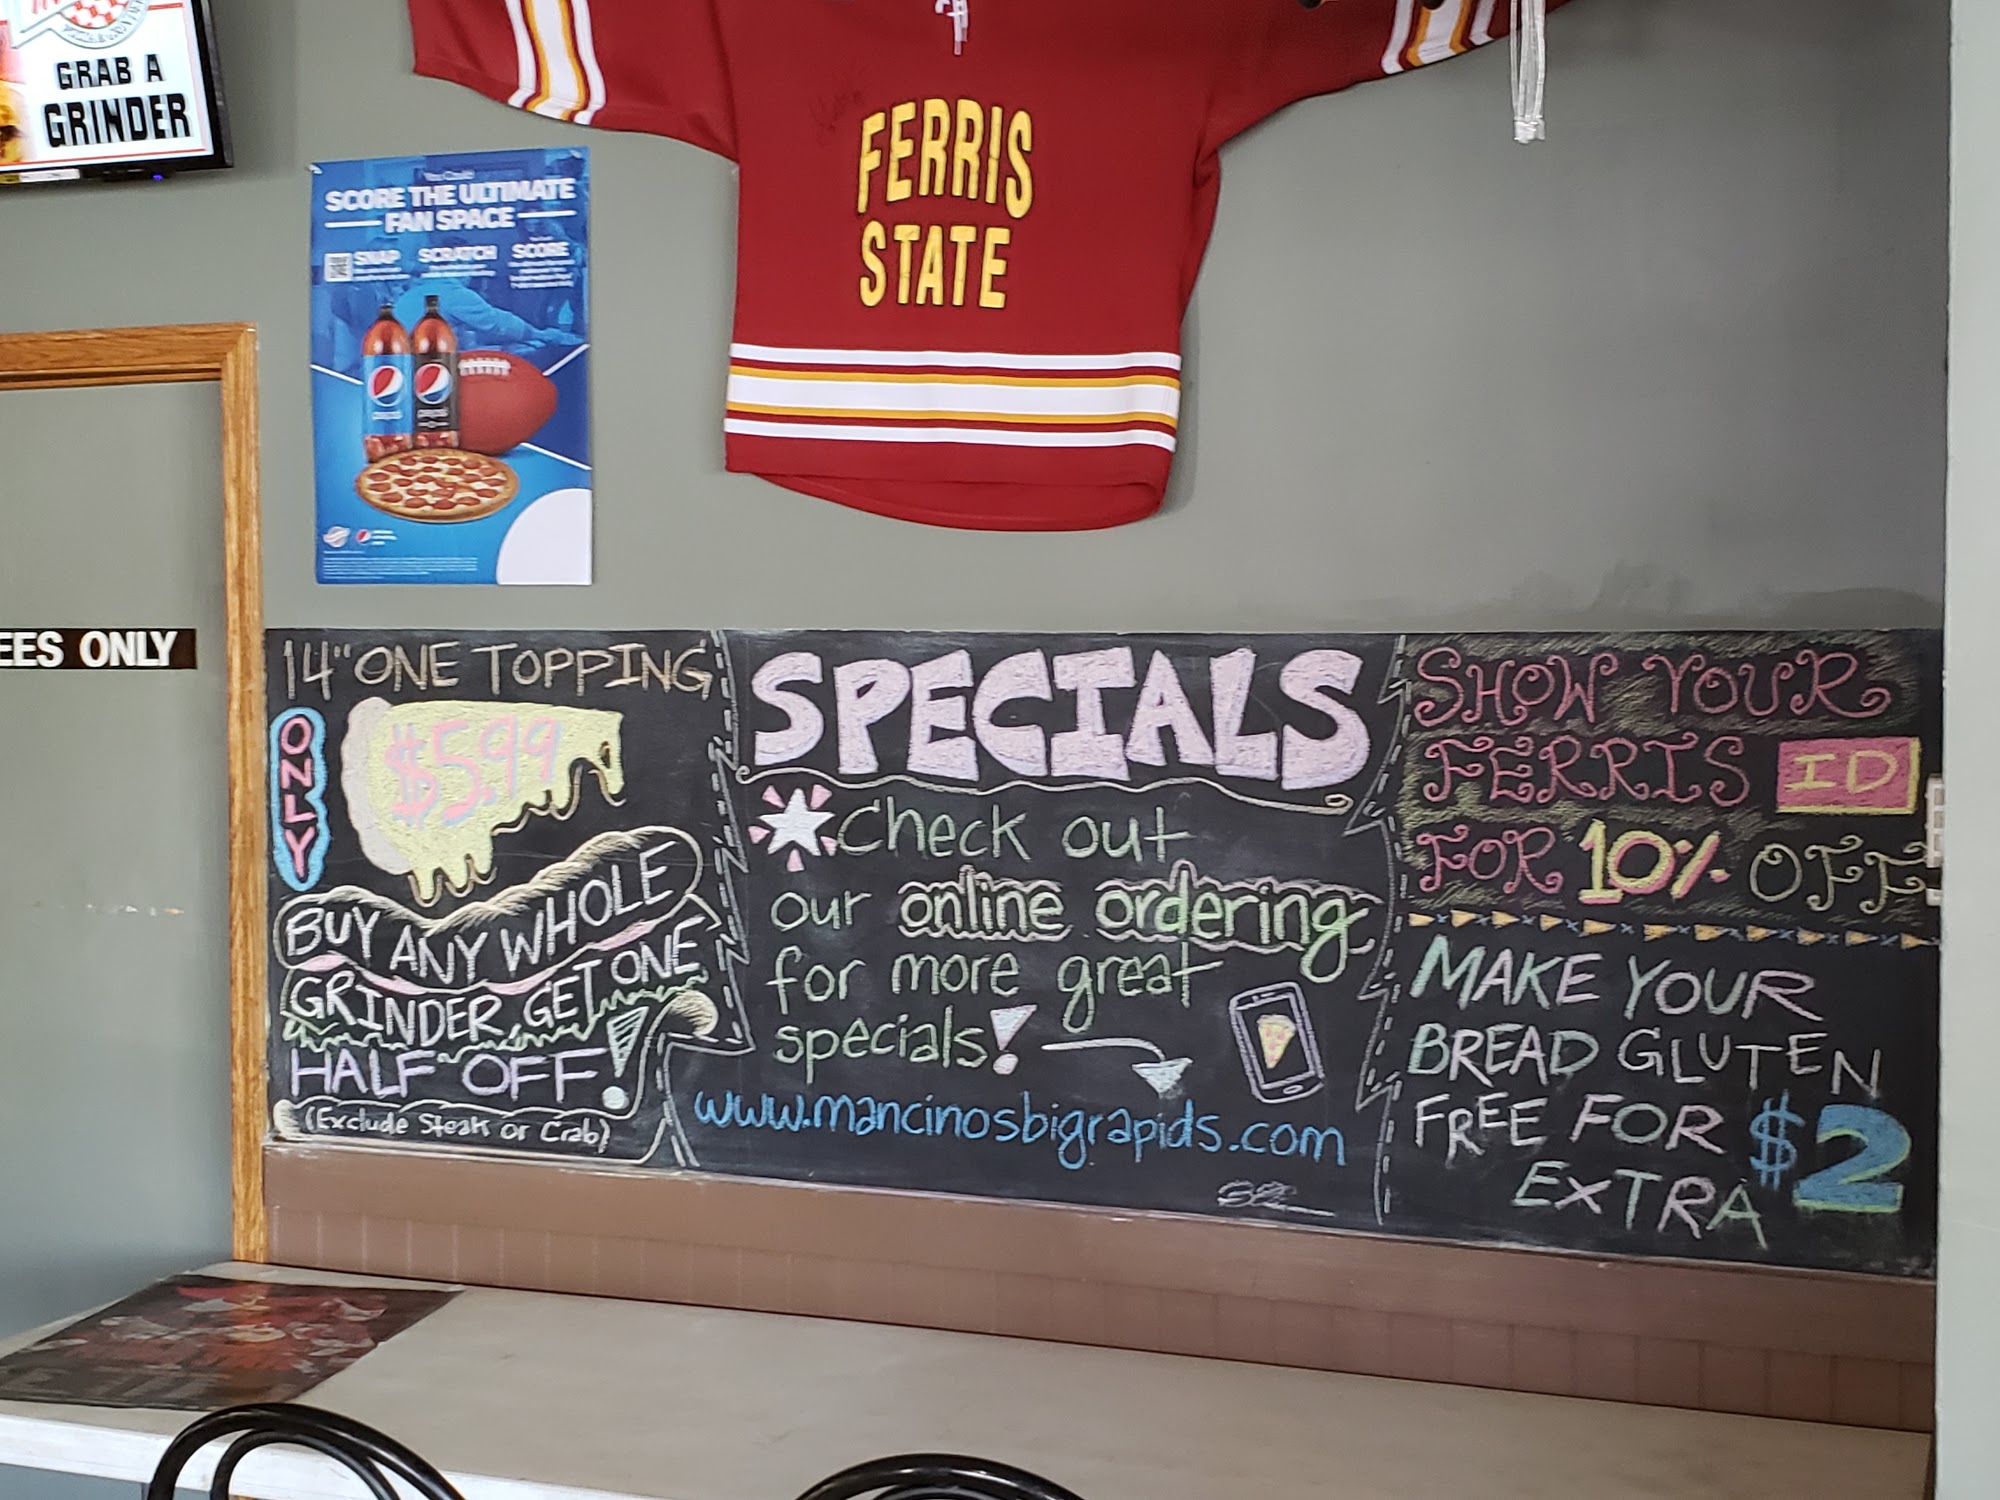 GRAB A
GRINDER
You Could
SCORE THE ULTIMATE
FAN SPACE
SNAP
SCRATCH
SCORE
pepsi
FERRIS
STATE
EES ONLY
14" ONE TOPPING
ONLY
$5.99
BUY ANY WHOLE
GRINDER, GET ONE
HALF OFF!
(Exclude Steak or Crab)
SPECIALS
Check out
our online ordering
for more great
specials!
www.mancinosbigrapids.com
SHOW YOUR
FERRIS ID
FOR 10% OFF
MAKE YOUR
BREAD GLUTEN
FREE FOR
EXTRA $2